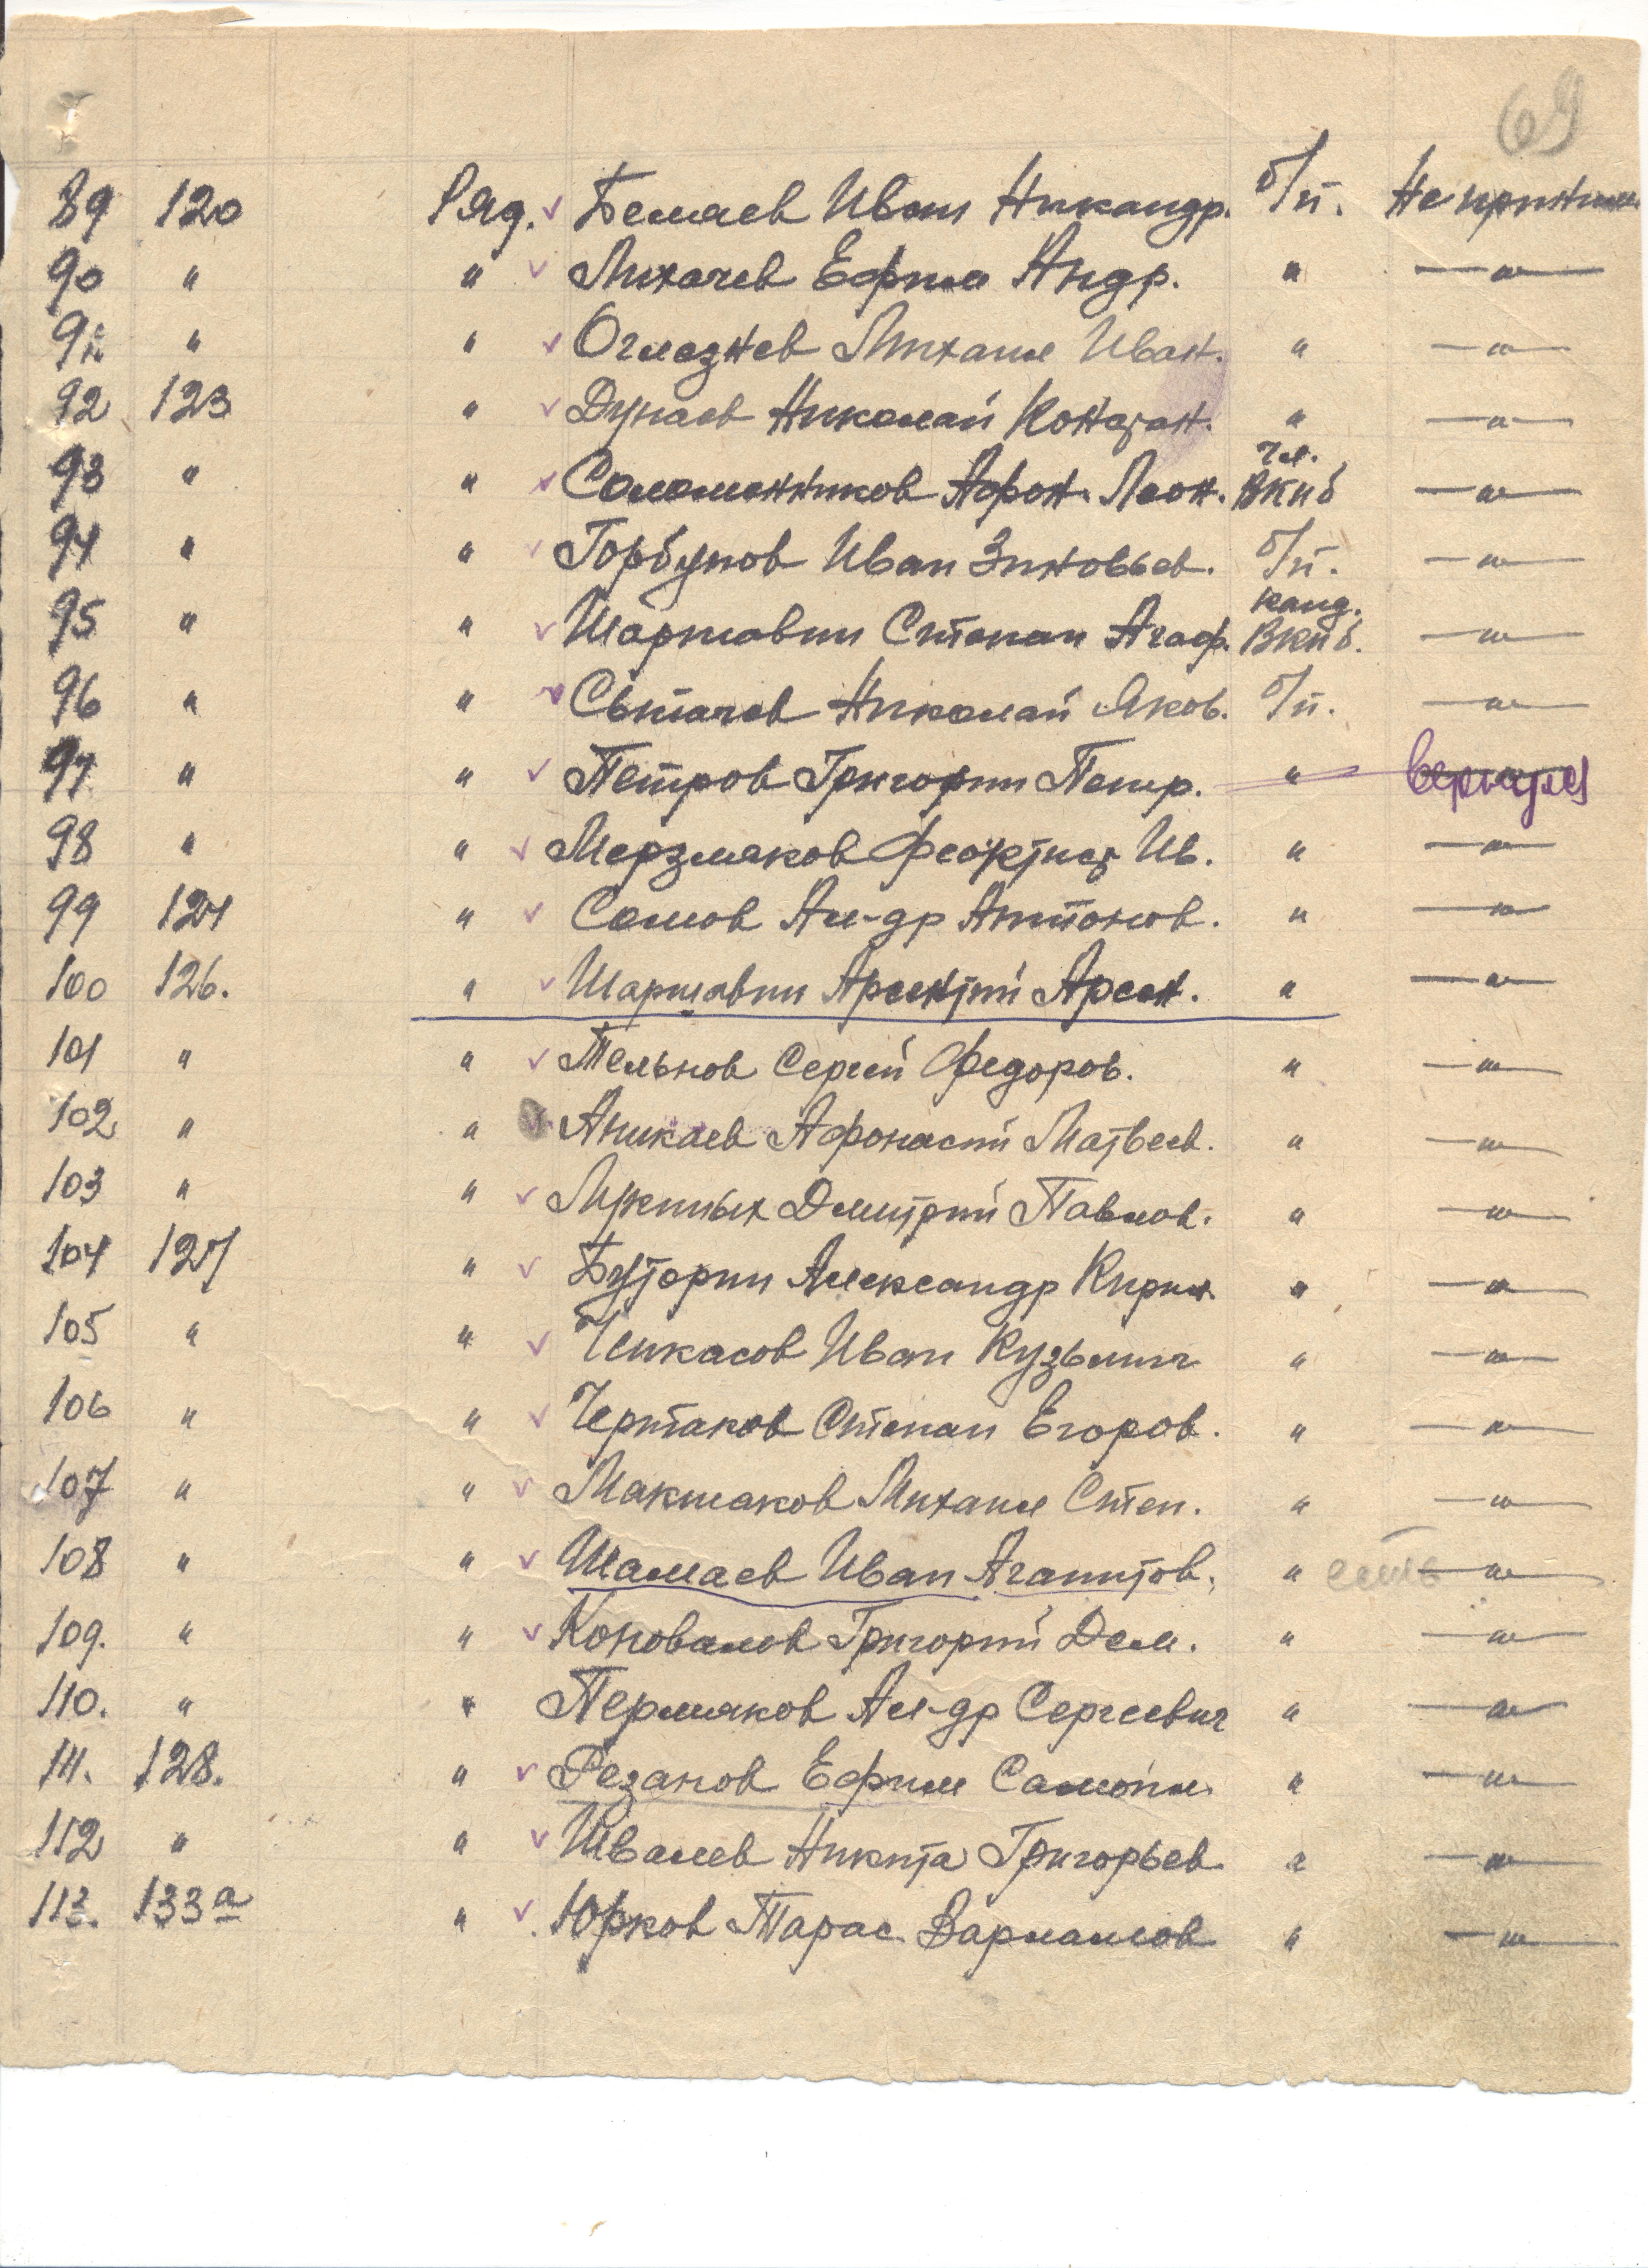 69
89 120 Ряд. v Белаев Иван Никандр. б/п. Не принима
90 " " v Лихачев Ефим Андр. " —"—
91. " " v Оглезнев Михаил Иван. " —"—
92 123 " v Дунаев Николай Констан. " —"—
чл.
93 " " v Соломенников Афон. Леон. ВКПб —"—
94 " " v Горбунов Иван Зиновьев. б/п. —"—
канд.
95 " " v Шаршавин Степан Агаф. ВКПб. —"—
96 " " v Сытачев Николай Яков. б/п. —"—
97 " " v Петров Григории Петр. " вернулся
98 " " v Мерзляков Феоктист Ив. " —"—
99 124 " v Сомов Ал-др Антонов. " —"—
100 126. " v Шаршавин Арсентий Арсен. " —"—
101 " " v Тельнов Сергей Федоров. " —"—
102 " " v Аникаев Афонасий Матвеев. " —"—
103 " " v Дмитрий Павлов. " —"—
104 127 " v Буторин Александр Кирил. " —"—
105 " " v Чикасов Иван Кузьмич " —"—
106 " " v Чертаков Степан Егоров. " —"—
107 " " v Макшаков Михаил Степ. " —"—
108 " " v Шалаев Иван Агапитов. " есть —"—
109. " " v Коновалов Григорий Дем. " —"—
110. " " Пермяков Ал-др Сергеевич " —"—
111. 128. " v Резанов Ефим Самойл. " —"—
112 " " v Швалев Никита Григорьев. " —"—
113. 133а " v Юрков Тарас Варламов " —"—